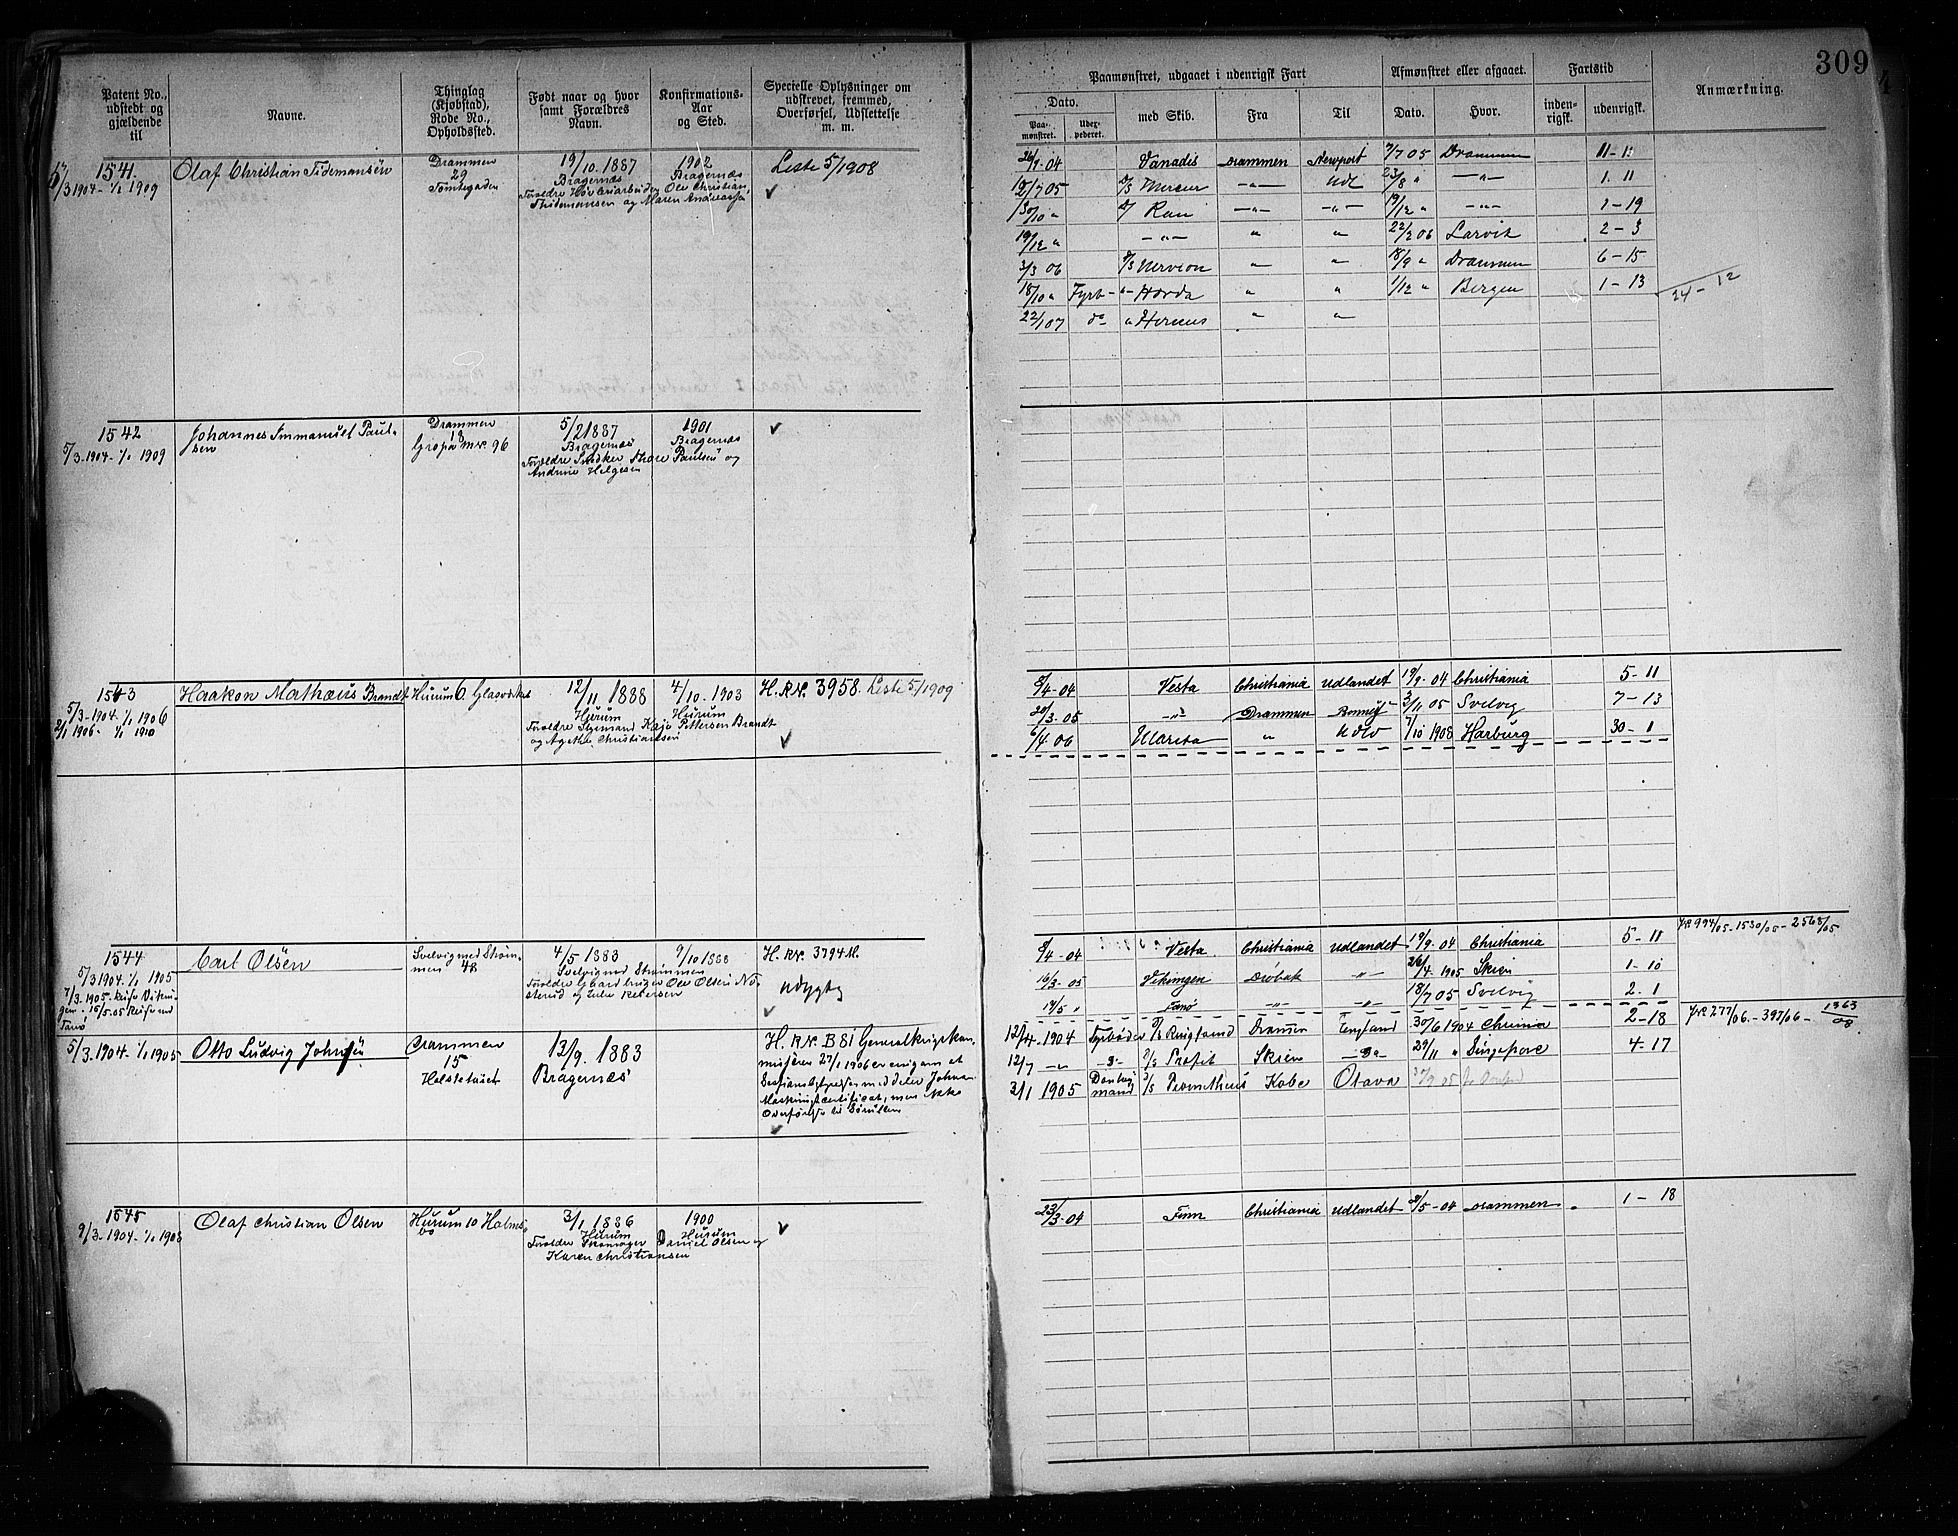 309
Patent No., udstedt og gjældende til
Navne.
Thinglag (Kjøbstad), Rode No., Opholdssted.
Født naar og hvor samt Forældres Navn.
Konfirmations- Aar og Sted.
Specielle Oplysninger om udskrevet, fremmed, Overførsel, Udslettelse m. m.
Paamønstret, udgaaet i udenrigsk Fart
Afmønstret eller afgaaet.
Fartstid
Anmærkning.
Dato.
Paa- mønstret.
med Skib.
Fra
Til
Dato.
Hvor.
inden- rigsk.
udenrigsk.
1541.
/3 1904 - 1/1 1909
Olaf Christian Tidemansen
Drammen
29
Tomtegaden
19/10. 1887
Bragernæs
1902
Bragernæs
Forældre Høvleriarbeider Ole Christian
Thidemansen og Maren Andreassen
Liste 5/1908
26/9-04 Vanadis Drammen Newport 7/7 05 Drammen 11-11
12/7 05 D/S Mercur -"- Udl 23/8 " -"- 1. 11
30/10 " D/ Ran -"- -"- 19/12 " -"- 1-19
19/12 " -"- " " 22/2 06 Larvik 2-3
3/3 06 D/S Nervion " " 18/9 " Drammen 6-15
18/10 " Fyrb- "- Horda " " 1/12 " Bergen 1-13
24-12
22/1 07 do " "
1542
5/3-1904-1/1 1909
Johannes Immanuel Paul-
sen
Drammen
19
Gropa m.v. 96
5/2 1887
Bragernæs
1901
Bragernæs
Forældre Snedker Thore Paulsen og
Andrine Helgesen
1543
5/3-1904-1/1 1906
2/1 1906- 1/1 1910
Haakon Mathæus Brandt
Hurum 6 Glasværket
12/11 1888
Hurum
4/10. 1903
Hurum
Forældre Styrmand Kaje Pettersen Brandt
og Agethe Christiansen
H.RN. 3958. Liste 5/1909
8/4-04 Vesta Christiania Udlandet 19/9-04 Christiania 5-11
20/3-05 -"- Drammen 2/11 05 Svelvig 7-13
6/4 06 Marita " Udld 7/10 1908 Harburg 30-1
1544
5/3 1904-1/1 1905
7/3-1905-Reise Vikin-
gen. 15/5.05 Reise med
Tanø
Carl Olsen
Svelvig med Strøm-
men 48
4/5 1883
Svelvig med Strømmen
9/10 1888
Forældre Gaardbruger Ole Olsen No-
sterud og Julie Petersen
H.RN. 3794 M.
Udygtig
8/4-04 Vesta Christiania Udlandet 19/9-04 Christiania 5-11
JN 994/05-1530/05-2568/05
16/3-05 Vikingen Drøbak -"- 26/4 1905 Skien 1-10
14/5 " Tanø -"- -"- 18/7 05 Svelvig 2-1
5/3. 1904-1/1 1905
Otto Ludvig Johnsen
Drammen
15
13/9. 1883
Bragernæs
H.RN. B 81 Generalkrigskom
misjæren 27/1 1906 er enig om at
Maskinistcertificat, men ikke
overføres til Sørullen
12/4-1904 Fyrbøder D/S Ringhand Drammen England 30/6 1904 Christiania 2-18
JN 277/06.-397/06- 1363/08
12/7 -"- D/S Profit Skien 29/11 " Singapore 4-17
3/1 1905 Donkey
mand D/S Prometheus Kobe Otava
1545
9/3-1904-1/1 1908
Olaf Christian Olsen
Hurum 10 Holms-
bo
3/1 1886
Hurum
1900
Hurum
Forældre Skomager Daniel Olsen og
Karen Christiansen
23/3-04 Finn Christiania Udlandet 9/5-04 Drammen 1-18